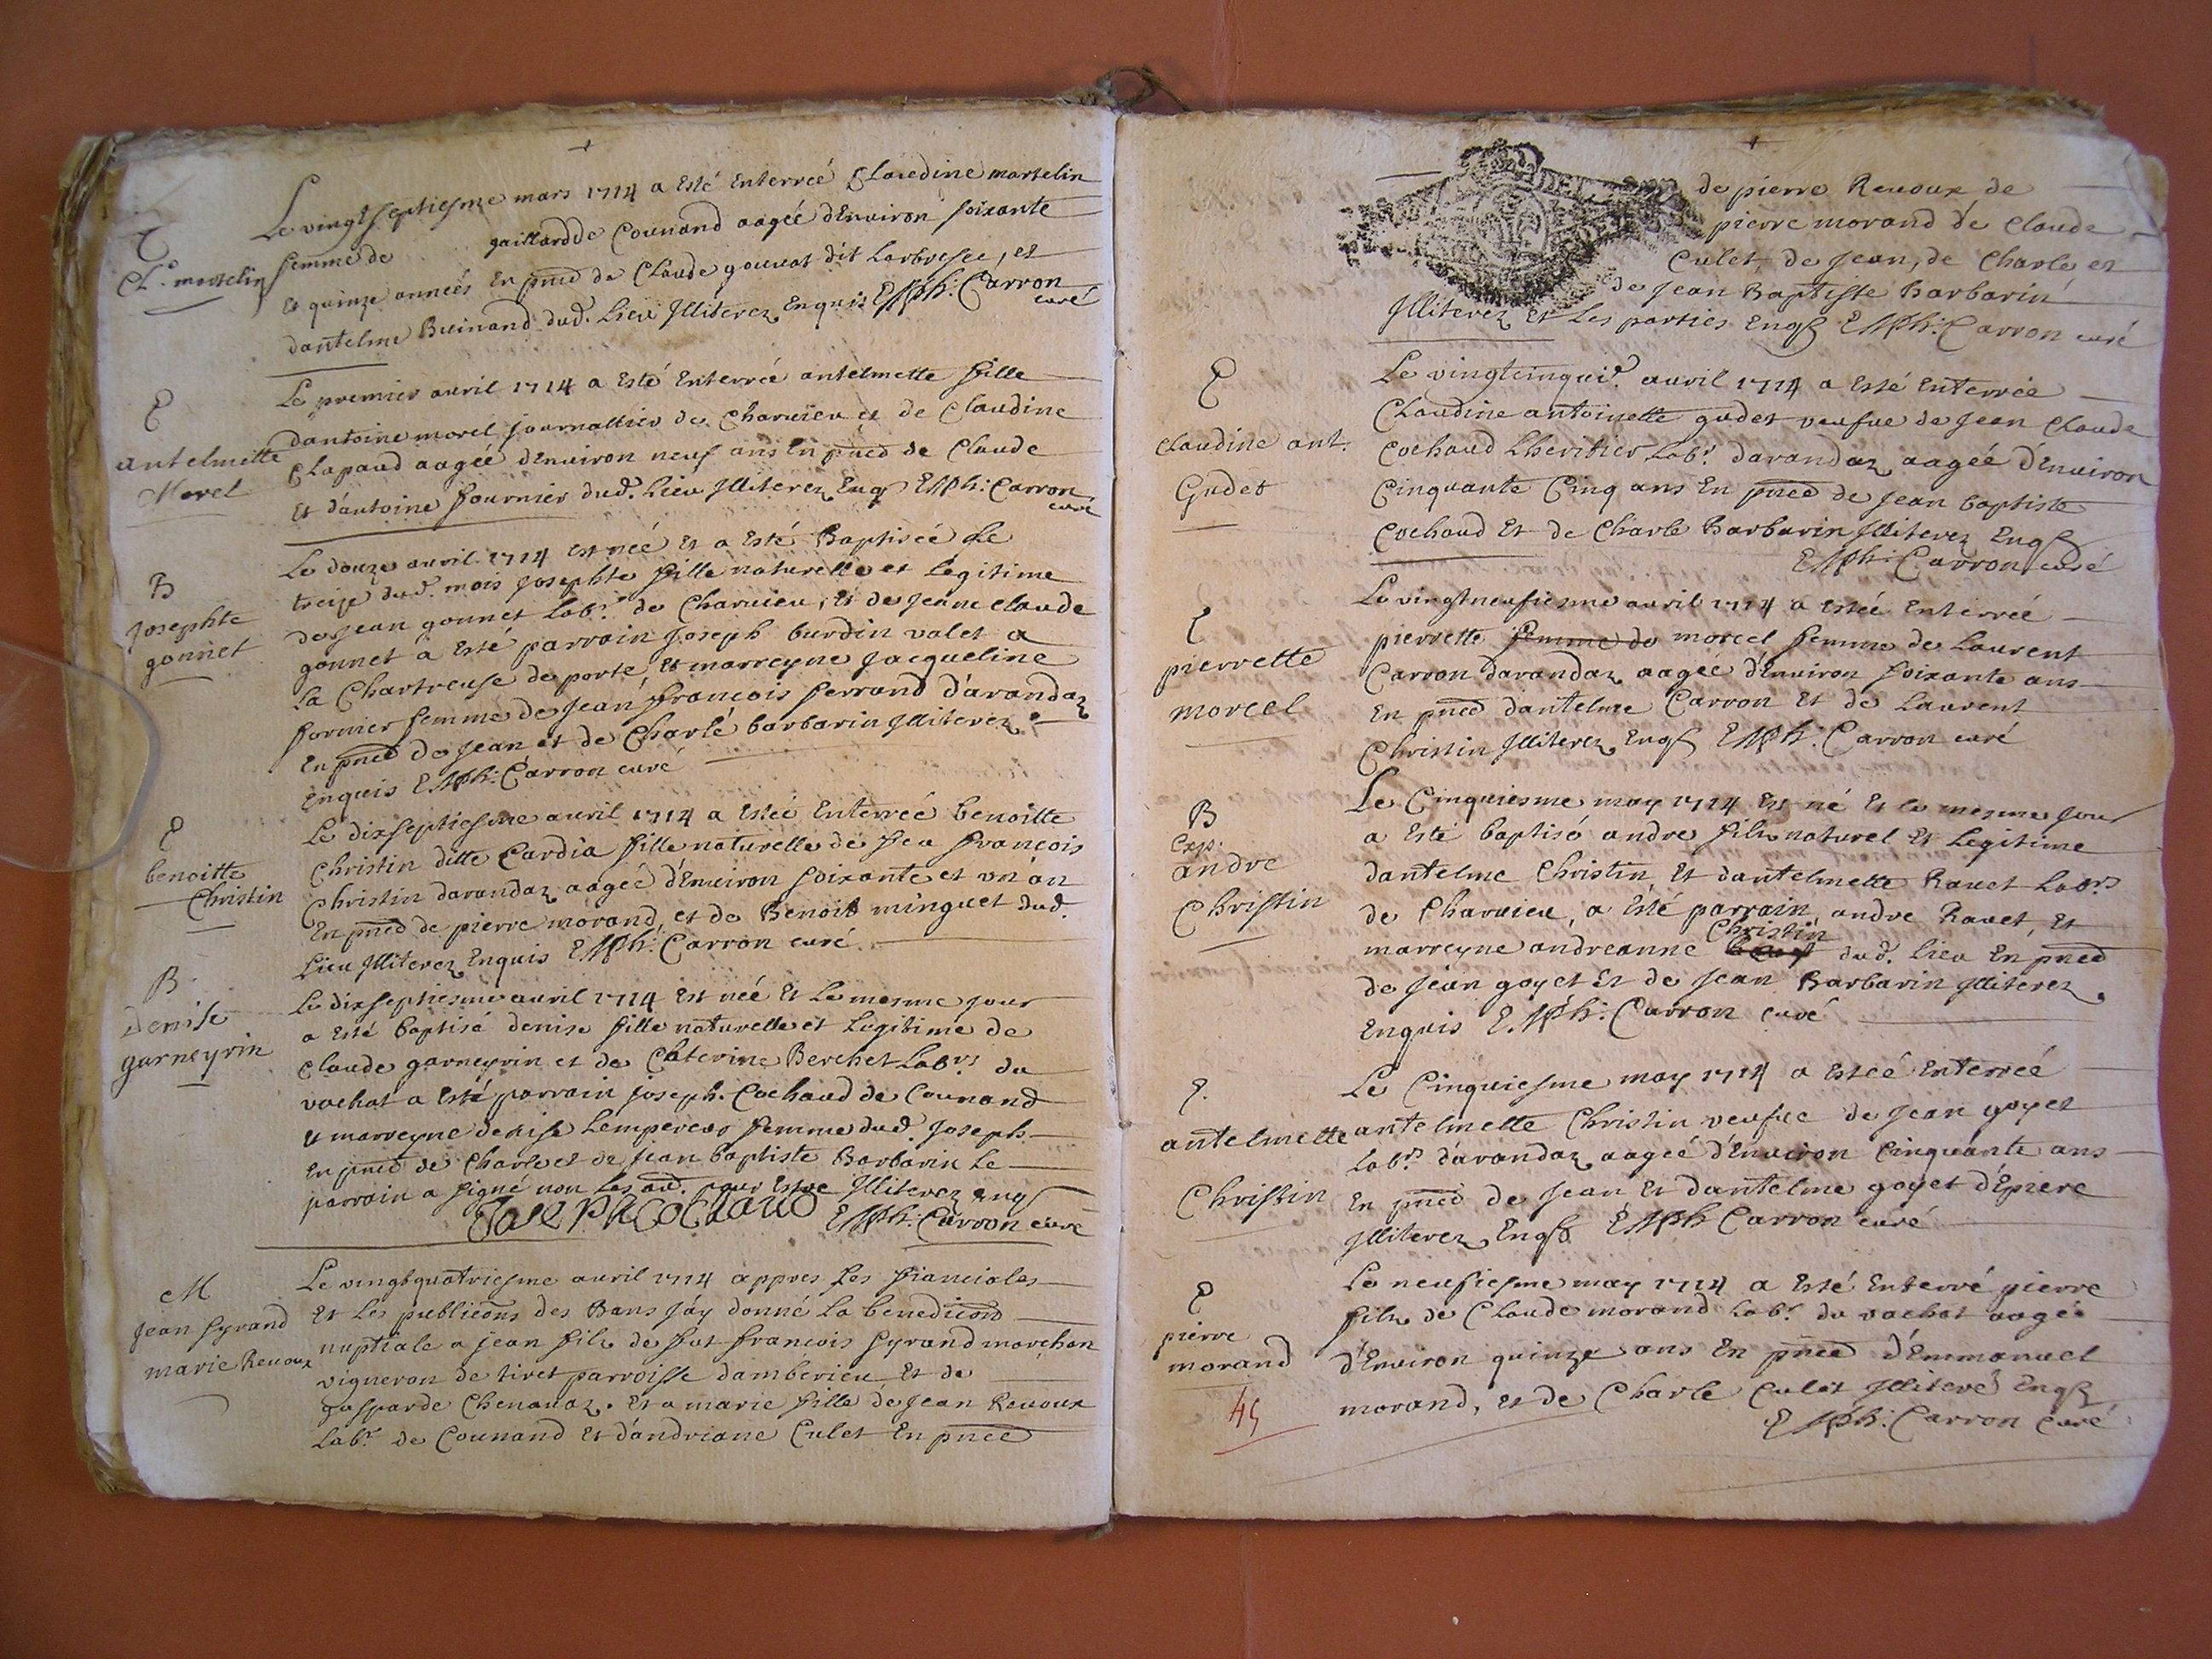 E
Cl. martelin
Le vingtseptiesme mars 1714 a Esté Enterreé Claudine martelin
femme de gaillard de Counand aagée d'Environ soixante
Et quinze anneés En pñce de Claude gouuat dit Larbresee, et
dantelme Buinand dud. Lieu Jlliterez Enquis E Mph: Carron
curé
E
antelmette
Morel
Le premier auril 1714 a Esté Enterreé antelmette fille
dantoine morel journallier de Charuieu et de Claudine
Clapaud aagée d'Enuiron neuf ans En pñce de Claude
Et d'antoine fournier dud. Lieu Jlliterez Enq E Mph: Carron
curé
B
Josephte
gonnet
Le douze auril 1714 est née et a Esté Baptiseé le
treize dud. mois Josephte fille naturelle et Legitime
de Jean gonnet Labr. de Charuieu, et de Jeane claude
gonnet a Esté parrain Joseph burdin valet a
la Chartreuse de porte, et marreyne Jacqueline
fornier femme de Jean françois ferrand d'arandaz
En pñce de Jean et de Charle barbarin Jlliterez
enquis E Mph: Carron curé
E
benoitte
Christin
Le dixseptiesme auril 1714 a Esteé Enterreé benoitte
Christin ditte Cardia fille naturelle de feu françois
Christin darandaz aageé d'Enuiron soixante et vn an
En pñce de pierre morand, et de Benoit minguet dud.
Lieu Jlliterez Enquis E Mph: Carron curé
B
Denise
garneyrin
Le dixseptiesme auril 1714 Est née Et Le mesme jour
a Esté baptisé denise fille naturelle et Legitime de
claude garneyrin et de Caterine Berchet Labrs du
vachat a Esté parrain joseph Cochaud de Counand
Et marreyne denise Lempereur femme dud. Joseph
En pñce de Charle et de jean baptiste Barbarin Le
parrain a signé non Les aud. pour Estre Jlliterez enq
JOSEPH COCHAUD E Mph: Carron curé
M
Jean syrand
marie Reuoux
Le vingtquatriesme auril 1714 appres Les fianciales
Et Les publicoñs des Bans j'ay donné La benedicõn
nuptiale a jean fils de fut françois syrand marchan
vigneron de tiret parroisse damberieu Et de
gasparde Chenauaz. Et a marie fille de Jean Reuoux
Labr. de Counand Et d'andriane Culet En pñce
de pierre Reuoux de
pierre morand de Claude
Culet, de Jean, de Charle et
de Jean Baptiste Barbarin
Jlliterez Et Les parties Enq E Mph: Carron curé
E
Claudine ant.
Gudet
Le vingtcinquie. auril 1714 a Esté Enterrée
Claudine antoinette gudet veufue de Jean Claude
Cochaud Lheritier Labr. darandaz aagée d'Enuiron
Cinquante Cinq ans En pñce de Jean baptiste
Cochaud Et de Charle Barbarin Jlliterez Enq
E Mph: Carron curé
E
pierrette
morcel
Le vingtneufiesme auril 1714 a esteé Enterreé
pierrette femme de morcel femme de Laurent
Carron darandaz aageé d'Enuiron soixante ans
En pñce dantelme Carron Et de Laurent
Christin Jlliterez Enq E Mph: Carron curé
B
Exp.
andre
Christin
Le Cinquiesme may 1714 Est né Et le mesme jour
a Esté baptisé andre fils naturel Et Legitime
dantelme Christin Et dantelmette Rauet Labrs
de Charuieu, a Esté parrain, andre Rauet, et
Christin
marreyne andreanne dud. Lieu En pñce
de Jean goyet Et de Jean Barbarin Jlliterez
Enquis E Mph: Carron curé
E.
antelmette
Christin
Le Cinquiesme may 1714 a Esteé Enterreé
antelmette Christin veufue de Jean goyet
Labr. d'arandaz aageé d'Enuiron Cinquante ans
En pñce de Jean Et dantelme goyet d'Epiere
Jlliterez Enq E Mph Carron curé
E
pierre
morand
45
Le neufiesme may 1714 a Esté Enterré pierre
fils de Claude morand Labr. du vachat aagé
d'Enuiron quinze ans En pñce d'Emmanuel
morand, et de Charle Culet Jlliteré Enq
E Mph: Carron Curé